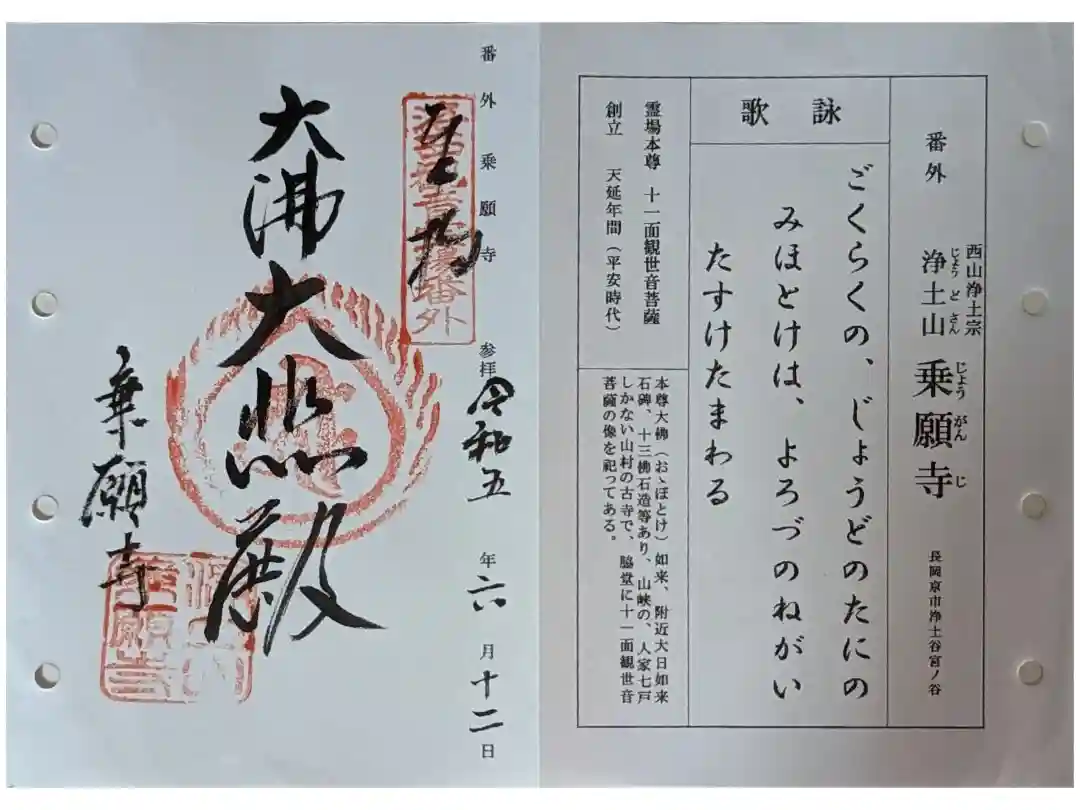 番外
西山浄土宗
じょうどさん じょうがんじ
浄土山 乗願寺
長岡京市浄土谷宮ノ谷
詠歌
ごくらくの、じょうどのたにの
みほとけは、よろづのねがい
たすけたまわる
霊場本尊 十一面観世音菩薩
創立 天延年間(平安時代)
本尊大佛(おゝほとけ)如来、附近大日如来
石碑、十三佛石造等あり、山峡の、人家七戸
しかない山村の古寺で、脇堂に十一面観世音
菩薩の像を祀ってある。
番外乗願寺 参拝 令和五年六月十二日
洛西観音霊場番外
大佛大悲殿
乗願寺